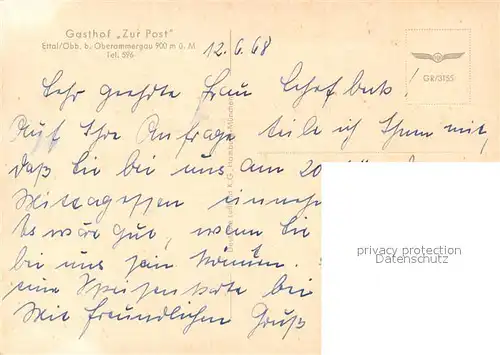 Gasthof „Zur Post"
Ettal/Obb. b. Oberammergau 900 m ü. M
Tel. 596
12.6.68
GR/3155
Sehr geehrte Frau
Auf Ihre Anfrage teile ich Ihnen mit,
daß Sie bei uns am 20.
Mittagessen
Es wäre gut, wenn Sie
bei uns sein können.
eine Speisenkarte bei
Mit freundlichen Gruß
privacy protection
Datenschutz